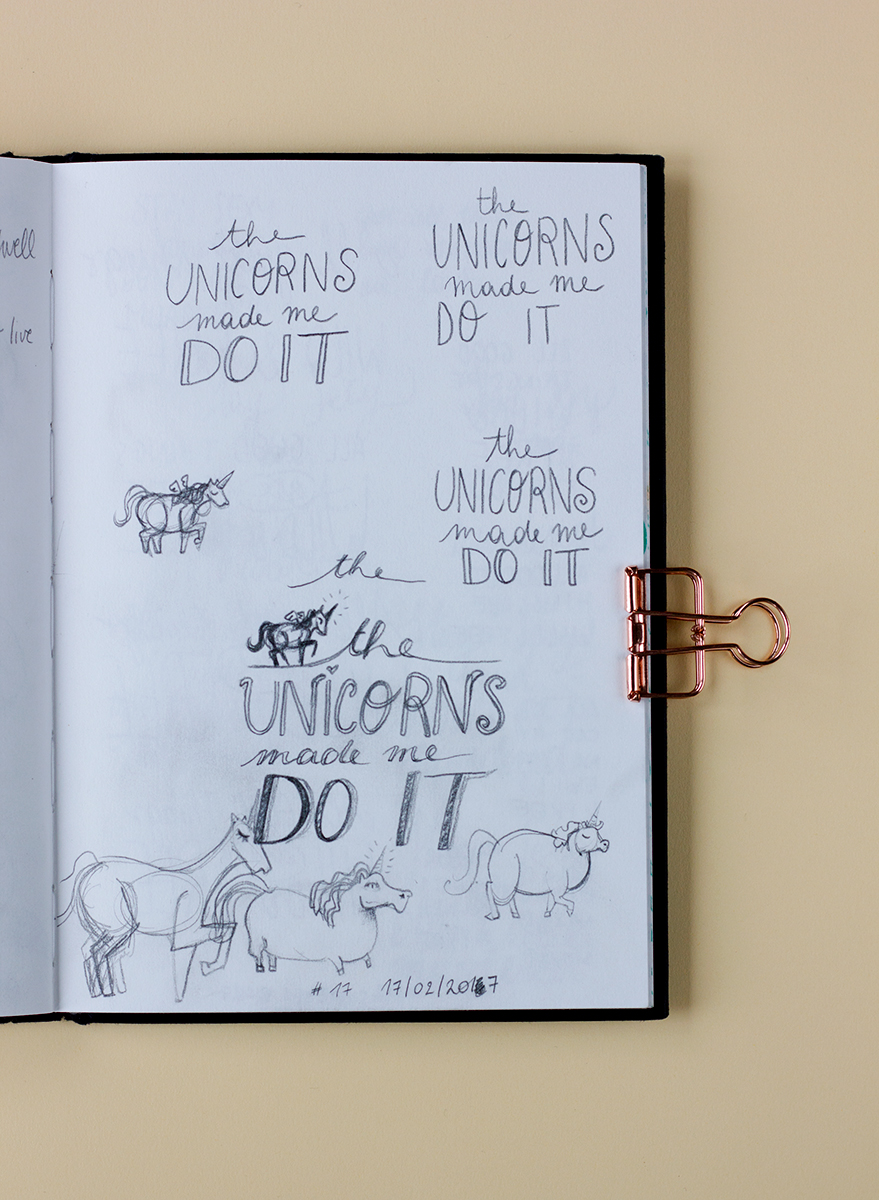 well
live
the
UNICORNS
made me
DO IT
the
UNICORNS
made me
DO IT
the
UNICORNS
made me
DO IT
the
the
UNICORNS
made me
DO IT
# 17 17/02/2017